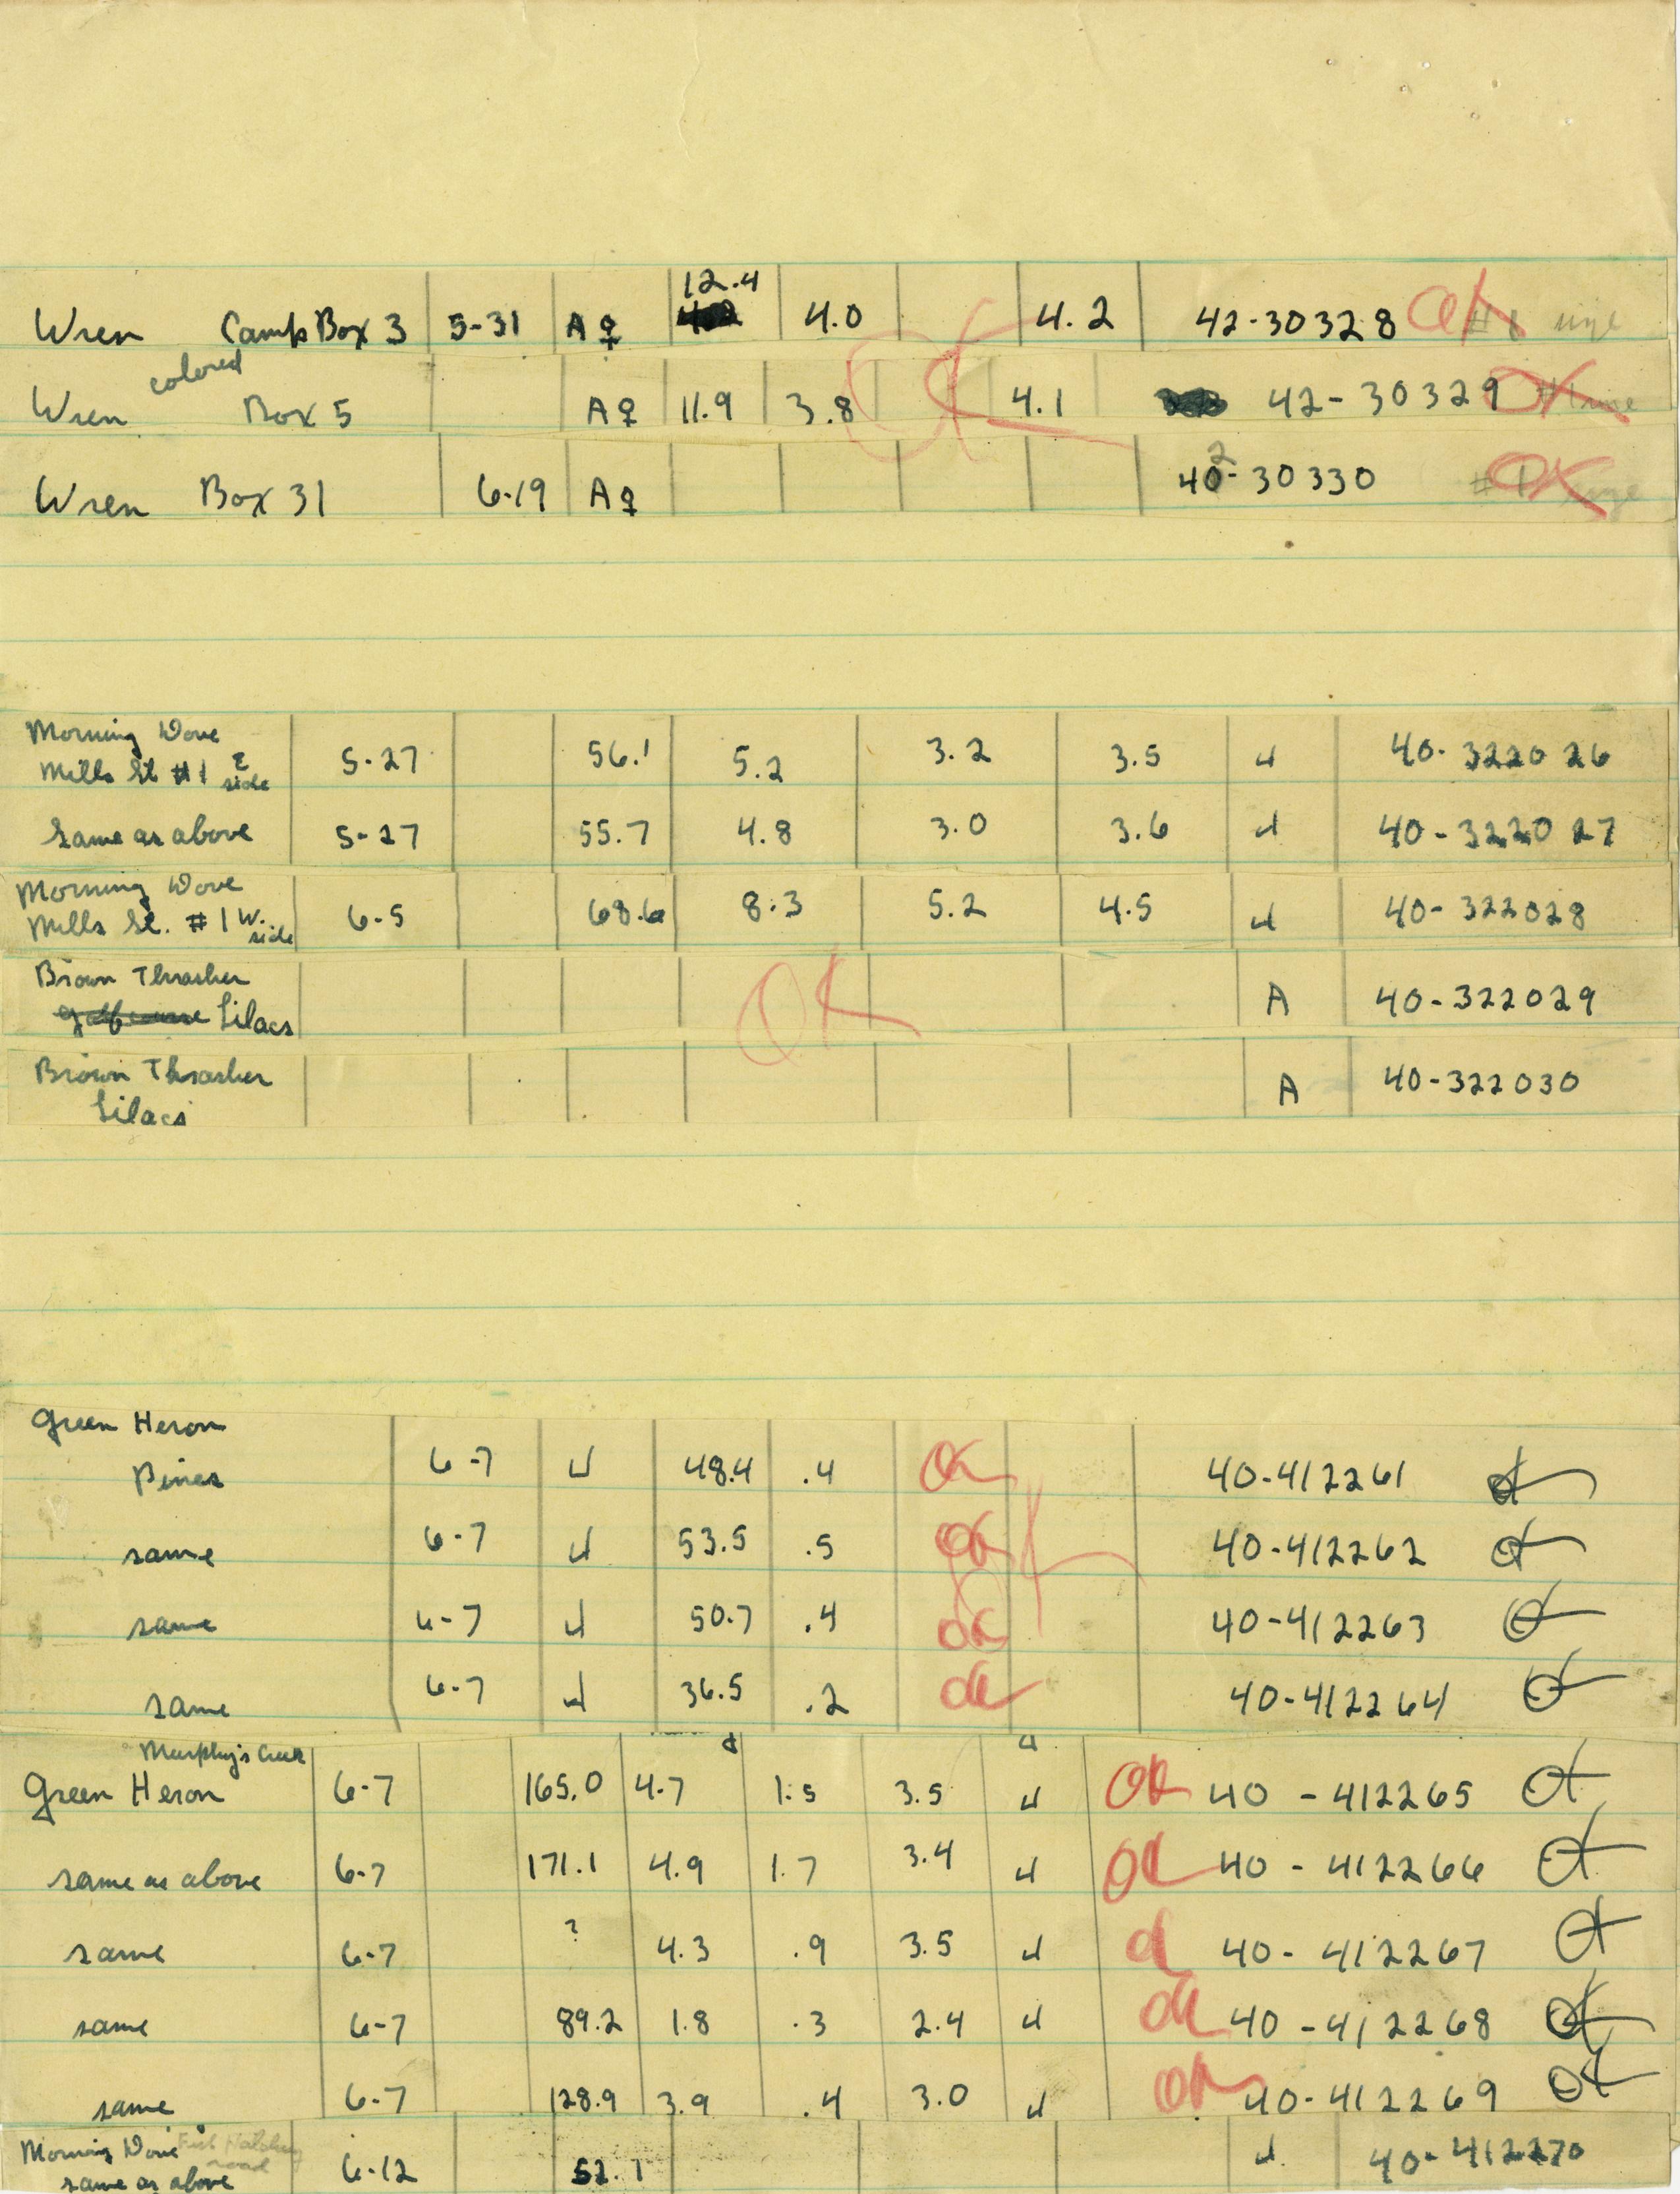 12.4
Wren Camp Box 3 5-31 A♀ 4.0 4.2 42-30328 OK #8 size
colored
Wren Box 5 A♀ 11.9 3.8 OK 4.1 42-30329 OK #1 size
2
Wren Box 31 6-19 A♀ 40-30330 #1 OK size
Morning Dove
Mills St #1 E side 5-27 56.1 5.2 3.2 3.5 J 40-322026
Same as above 5-27 55.7 4.8 3.0 3.6 J 40-322027
Morning Dove
Mills St. #1 W. side 6-5 68.6 8.3 5.2 4.5 J 40-322028
Brown Thrasher
golf course Lilacs OK A 40-322029
Brown Thrasher
Lilacs A 40-322030
Green Heron
Pines 6-7 J 48.4 .4 OK 40-412261 OK
same 6-7 J 53.5 .5 OK 40-412262 OK
same 6-7 J 50.7 .4 OK 40-412263 OK
same 6-7 J 36.5 .2 OK 40-412264 OK
Murphy's Creek
Green Heron 6-7 165.0 4.7 1.5 3.5 J OK 40-412265 OK
same as above 6-7 171.1 4.9 1.7 3.4 J OK 40-412266 OK
same 6-7 ? 4.3 .9 3.5 J OK 40-412267 OK
same 6-7 89.2 1.8 .3 2.4 J OK 40-412268 OK
same 6-7 128.9 3.9 .4 3.0 J OK 40-412269 OK
Morning Dove Fish Hatchery road
same as above 6-12 52.1 J 40-412270